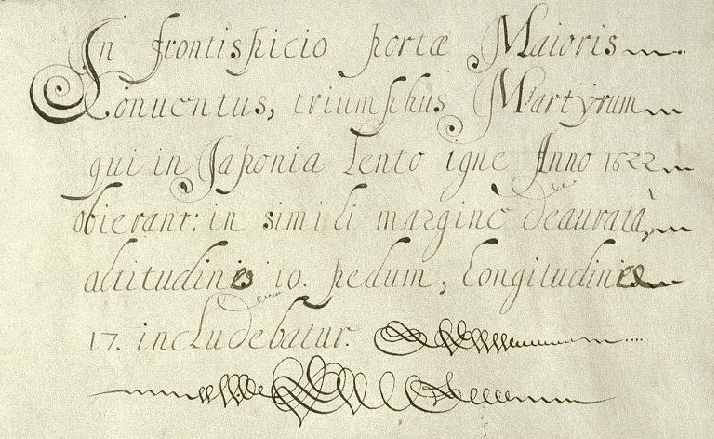 In frontispicio portæ Maioris
Conuentus, triumphus Martyrum
qui in Japonia lento igne Anno 1622
obierant: in simili margine deaurata,
altitudinis 10. pedum, longitudinis
17. includebatur.